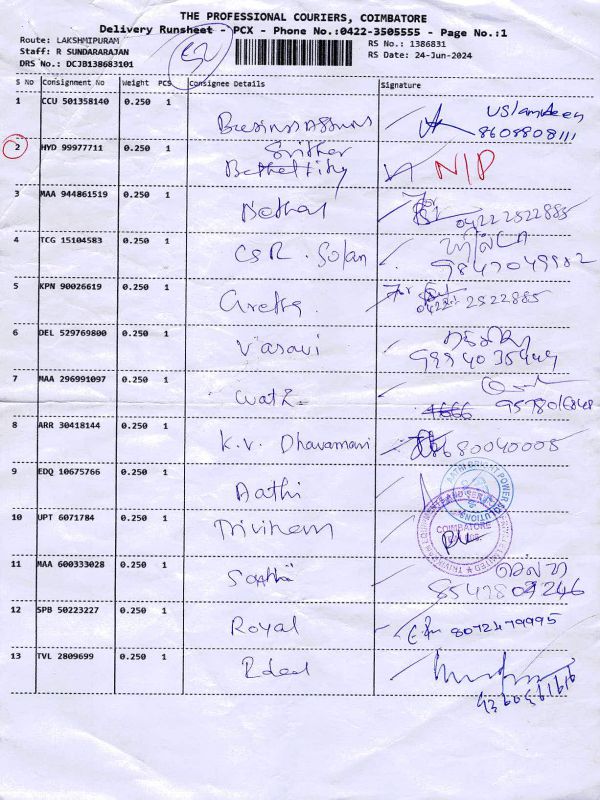 THE PROFESSIONAL COURIERS, COIMBATORE
Delivery Runsheet - PCX - Phone No.:0422-3505555 - Page No.:1
Route: LAKSHMIPURAM
Staff: R SUNDARARAJAN
DRS No.: DCJB138683101
RS No.: 1386831
RS Date: 24-Jun-2024
S No Consignment No Weight PCS Consignee Details Signature
1 CCU 501358140 0.250 1
8608808111
2 HYD 99977711 0.250 1 Srither N/P
3 MAA 944861519 0.250 1 Bethal For
0422 2522885
4 TCG 15104583 0.250 1 CSR . Solan
9843049982
5 KPN 90026619 0.250 1 Greths For
0422 2522885
6 DEL 529769800 0.250 1 Vasavi
9994035449
7 MAA 296991097 0.250 1
8 ARR 30418144 0.250 1 K.V. Dhavamani 8680040005
9 EDQ 10675766 0.250 1 Aathi
AATHI BRIGHT POWER SOLUTIONS
10 UPT 6071784 0.250 1
COIMBATORE
11 MAA 600333028 0.250 1 Sakthi
12 SPB 50223227 0.250 1 Royal 8072479995
13 TVL 2809699 0.250 1 Rdeal